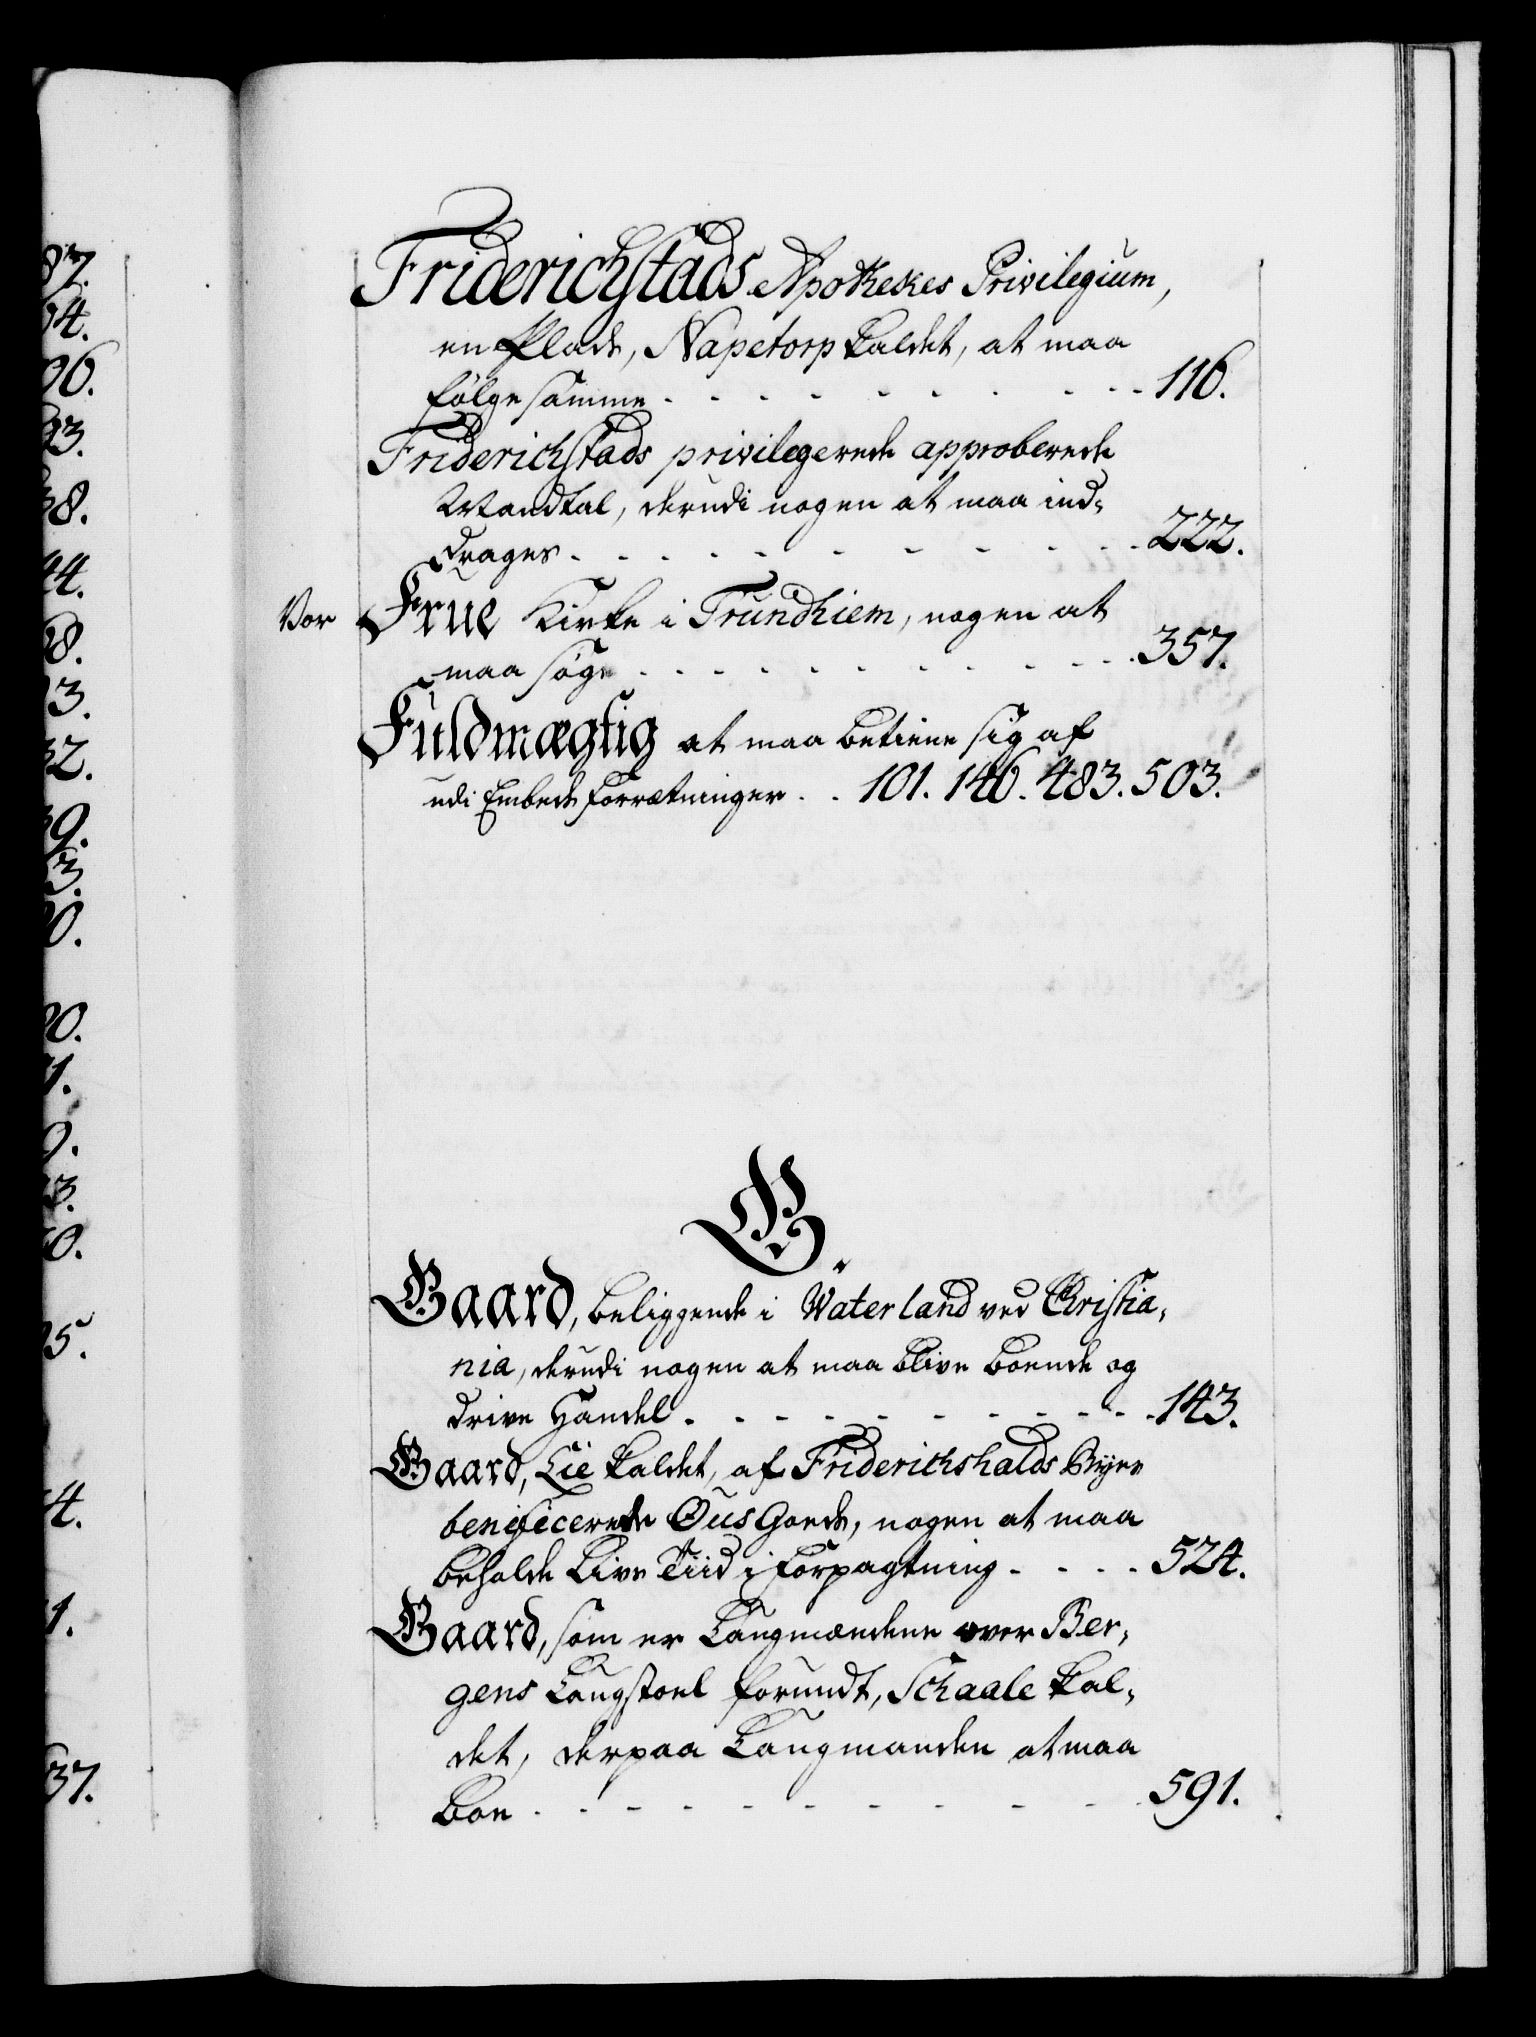 87.
04.
06.
93.
38.
44.
68.
13.
32.
39.
53.
80.
00.
71.
0.
13.
50.
95.
14.
11.
37.
Friderichstads Apothekes Privilegium,
en Plads, Napetorp kaldet, at maa
følge samme - - - - - - - - - - 116.
Friderichstads privilegerede approberede
Mandtal, derudi nogen at maa ind-
drages - - - - - - - - - - 222.
Vor Frue Kirke i Trundhiem, nogen at
maa søge - - - - - - - - - - 357.
Fuldmægtig at maa betiene sig af
udi Embeds Forrætninger - - 101. 146. 483. 503.
G.
Gaard, beliggende i Waterland ved Christia-
nia, derudi nogen at maa blive boende og
drive Handel - - - - - - - - - - 143.
Gaard, Lie kaldet, af Friderichshalds Byes
benificerede Øus Goeds, nogen at maa
beholde Livs Tiid i Forpagtning - - - - 524.
Gaard, som er Laugmændene over Ber-
gens Laugstoel forundt, Schaale kal-
det, derpaa Laugmanden at maa
boe - - - - - - - - - - 591.